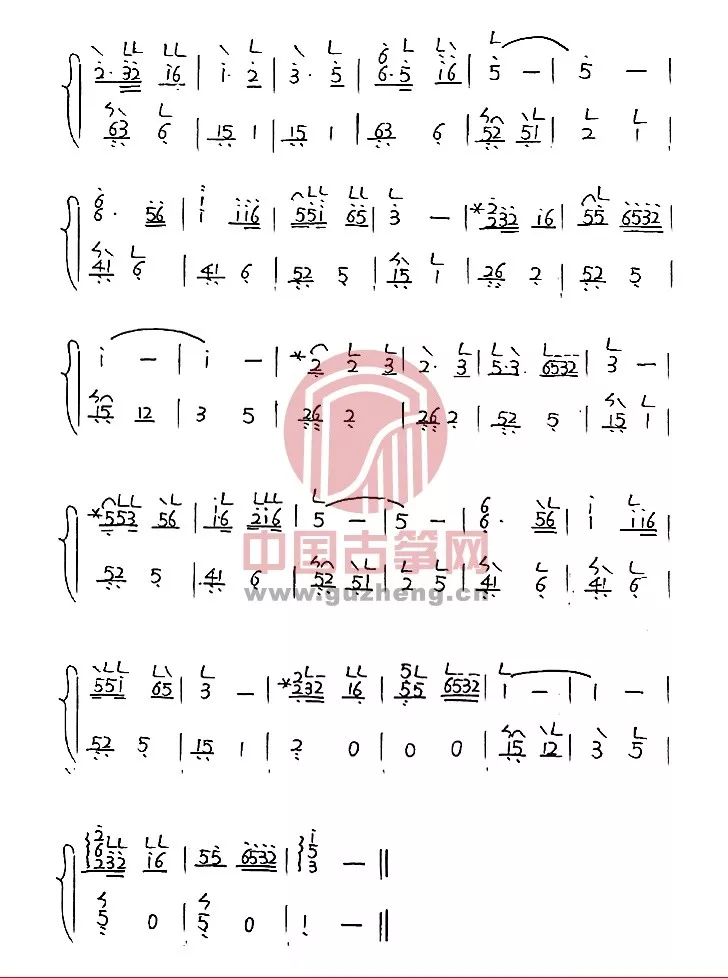 2·32 i6 | i· 2 | 3· 5 | 6·5 i6 | 5 — | 5 — |
63 6 | 15 1 | 15 1 | 63 6 | 52 51 | 2 1 |
6· 56 | i i i6 | 55i 65 | 3 — | *232 i6 | 55 6532 |
41 6 | 41 6 | 52 5 | 15 1 | 26 2 | 52 5 |
i — | i — | *2 2 3 | 2· 3 | 5·3· 6532 | 3 — |
15 12 | 3 5 | 26 2 | 26 2 | 52 5 | 15 1 |
*553 56 | i·6 2i6 | 5 — | 5 — | 6· 56 | i i i6 |
52 5 | 41 6 | 52 51 | 2 5 | 41 6 | 41 6 |
中国古筝网
www.guzheng.cn
55i 65 | 3 — | *232 16 | 55 6532 | 1 — | 1 — |
52 5 | 15 1 | 2 0 | 0 0 | 15 12 | 3 5 |
232 i6 | 55 6532 | i 5 3 — ||
5 0 | 5 0 | 1 — ||